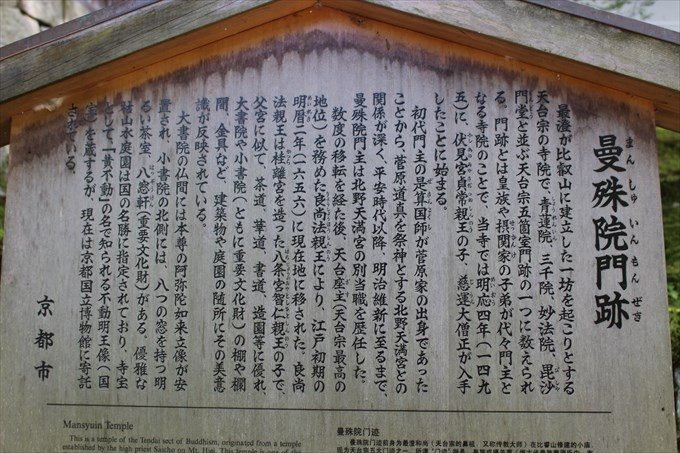 曼殊院門跡
まんしゅいんもんぜき
最澄が比叡山に建立した一坊を起こりとする
天台宗の寺院で、青蓮院、三千院、妙法院、毘沙
門堂と並ぶ天台宗五箇室門跡の一つに数えられ
る。門跡とは皇族や摂関家の子弟が代々門主と
なる寺院のことで、当寺では明応四年（一四九
五）に、伏見宮貞常親王の子、慈運大僧正が入寺
したことに始まる。
初代門主の是算国師が菅原家の出身であった
ことから、菅原道真を祭神とする北野天満宮との
関係が深く、平安時代以降、明治維新に至るまで、
曼殊院門主は北野天満宮の別当職を歴任した。
数度の移転を経た後、天台座主（天台宗最高の
地位）を務めた良尚法親王により、江戸初期の
明暦二年（一六五六）に現在地に移された。良尚
法親王は桂離宮を造った八条宮智仁親王の子で、
父宮に似て、茶道、華道、書道、造園等に優れ、
大書院や小書院（ともに重要文化財）の棚や欄
間、金具など、建築物や庭園の随所にその美意
識が反映されている。
大書院の仏間には本尊の阿弥陀如来立像が安
置され、小書院の北側には、八つの窓を持つ明
るい茶室、八窓軒（重要文化財）がある。優雅な
枯山水庭園は国の名勝に指定されており、寺宝
として「黄不動」の名で知られる不動明王像（国
宝）を蔵するが、現在は京都国立博物館に寄託
されている。
京都市
Mansyuin Temple
This is a temple of the Tendai sect of Buddhism, originated from a temple
established by the high priest Saicho on Mt. Hiei. This temple is one of the
曼殊院门迹
曼殊院门迹前身为最澄和尚（天台宗的鼻祖，又称传教大师）在比睿山修建的小庙，